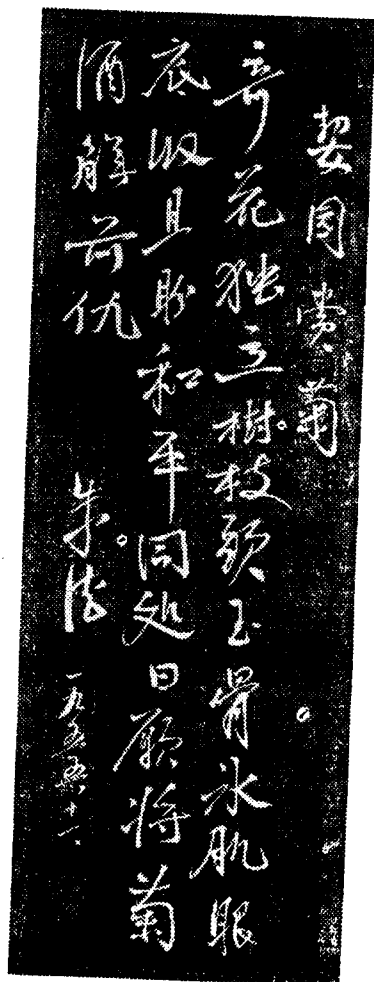 契园赏菊
奇花独立樹枝頭玉骨冰肌眼
底收且盼和平同处日願将菊
酒解前仇
朱德
一九五五、十一、